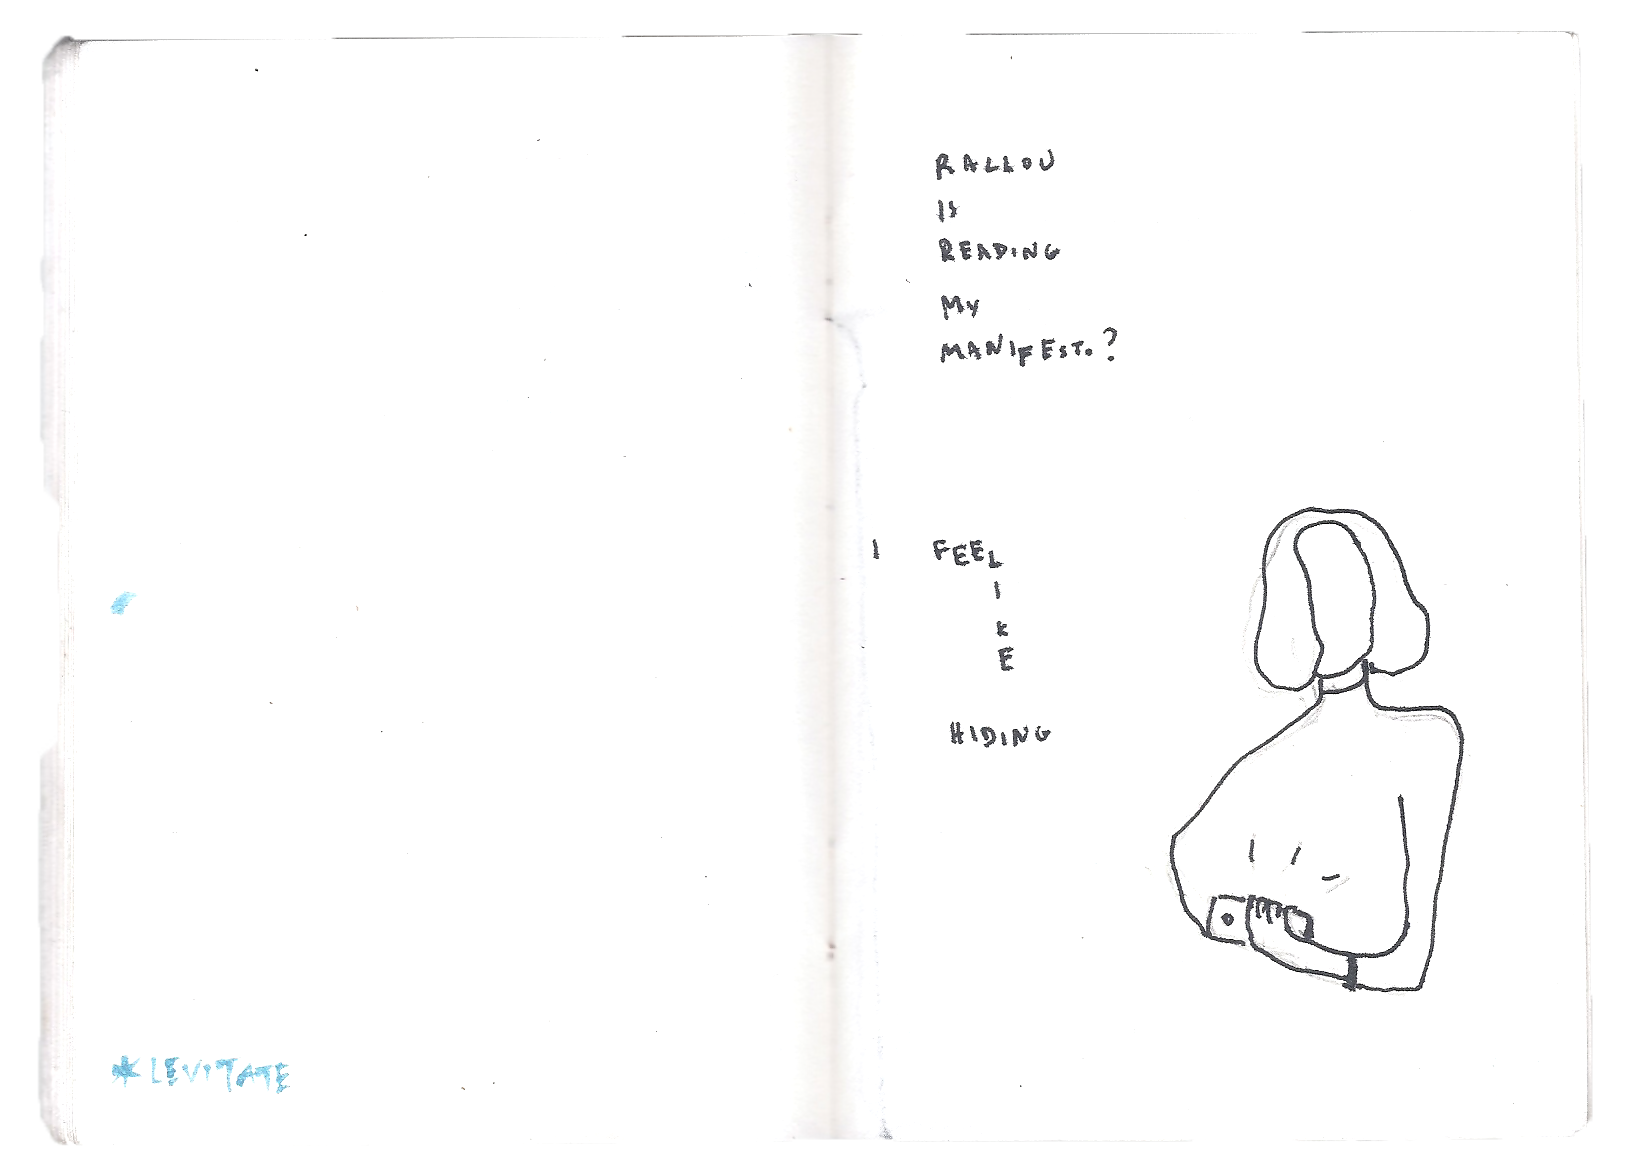 *LEVITATE
RALLOU
IS
READING
MY
MANIFESTO?
I FEEL
I
K
E
HIDING